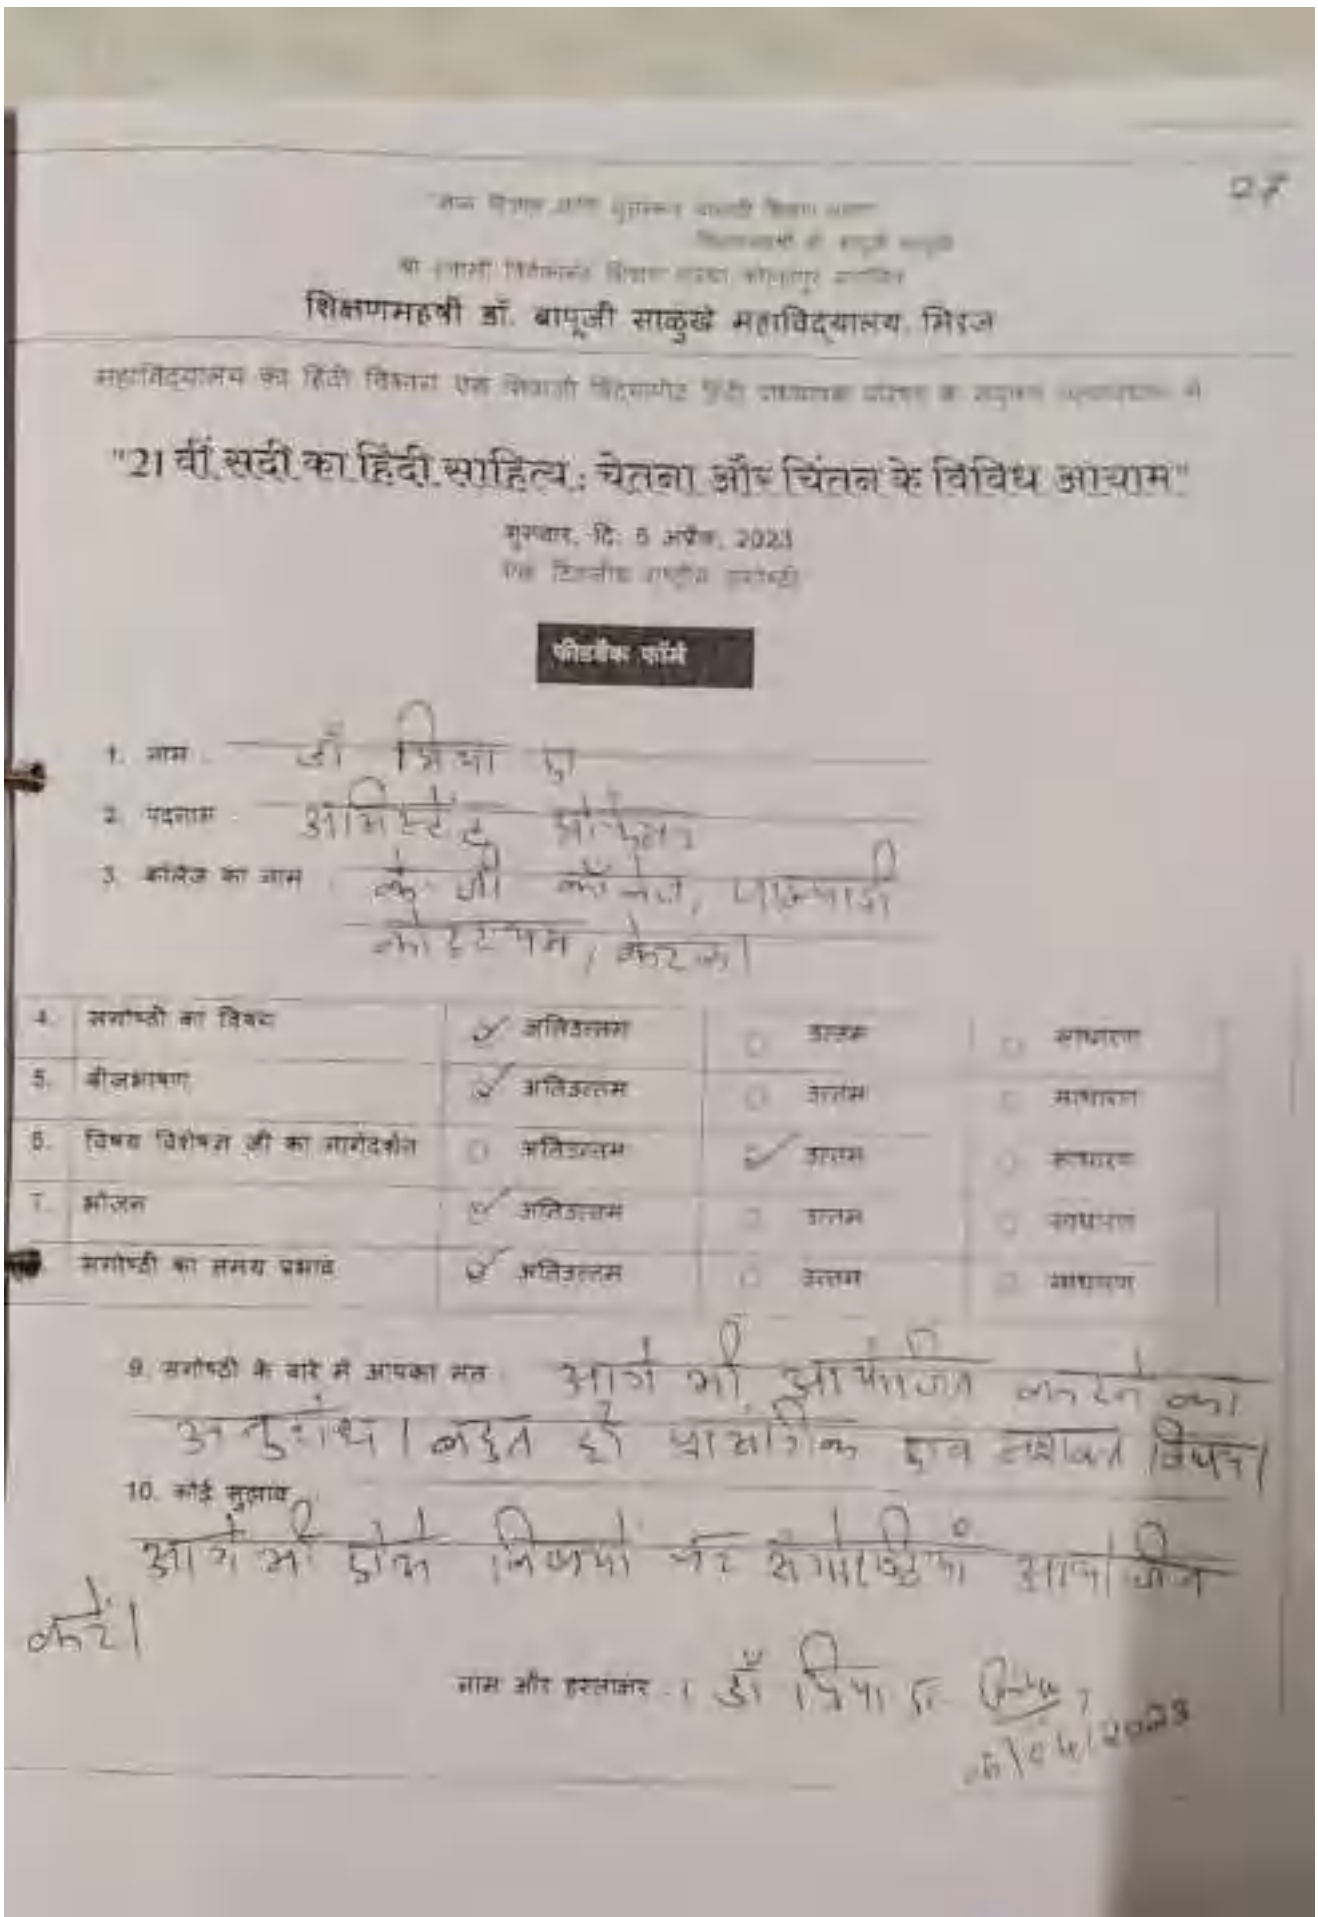 27
शिक्षणमहर्षी डॉ. बापूजी साळुंखे महाविद्यालय, मिरज
महाविद्यालय का हिंदी विभाग एवं शिवाजी विद्यापीठ हिंदी प्राध्यापक परिषद के संयुक्त तत्वावधान में
"21 वीं सदी का हिंदी साहित्य : चेतना और चिंतन के विविध आयाम"
गुरुवार, दि: 6 अप्रैल, 2023
एक दिवसीय राष्ट्रीय संगोष्ठी
फीडबैक फॉर्म
1. नाम : डॉ प्रिया ए
2. पदनाम : असिस्टेंट प्रोफेसर
3. कॉलेज का नाम : के. जी कॉलेज, पाम्पाडी
कोट्टयम, केरल।
4. संगोष्ठी का विषय अतिउत्तम उत्तम साधारण
5. बीजभाषण अतिउत्तम उत्तम साधारण
6. विषय विशेषज्ञ जी का मार्गदर्शन अतिउत्तम उत्तम साधारण
7. भोजन अतिउत्तम उत्तम साधारण
संगोष्ठी का समग्र प्रभाव अतिउत्तम उत्तम साधारण
9. संगोष्ठी के बारे में आपका मत : आगे भी आयोजित करने का
अनुरोध। बहुत ही प्रासंगिक एवं सशक्त विषय।
10. कोई सुझाव :
आगे भी विषयों पर संगोष्ठियाँ आयोजित
करें।
नाम और हस्ताक्षर : डॉ प्रिया ए
06/04/2023